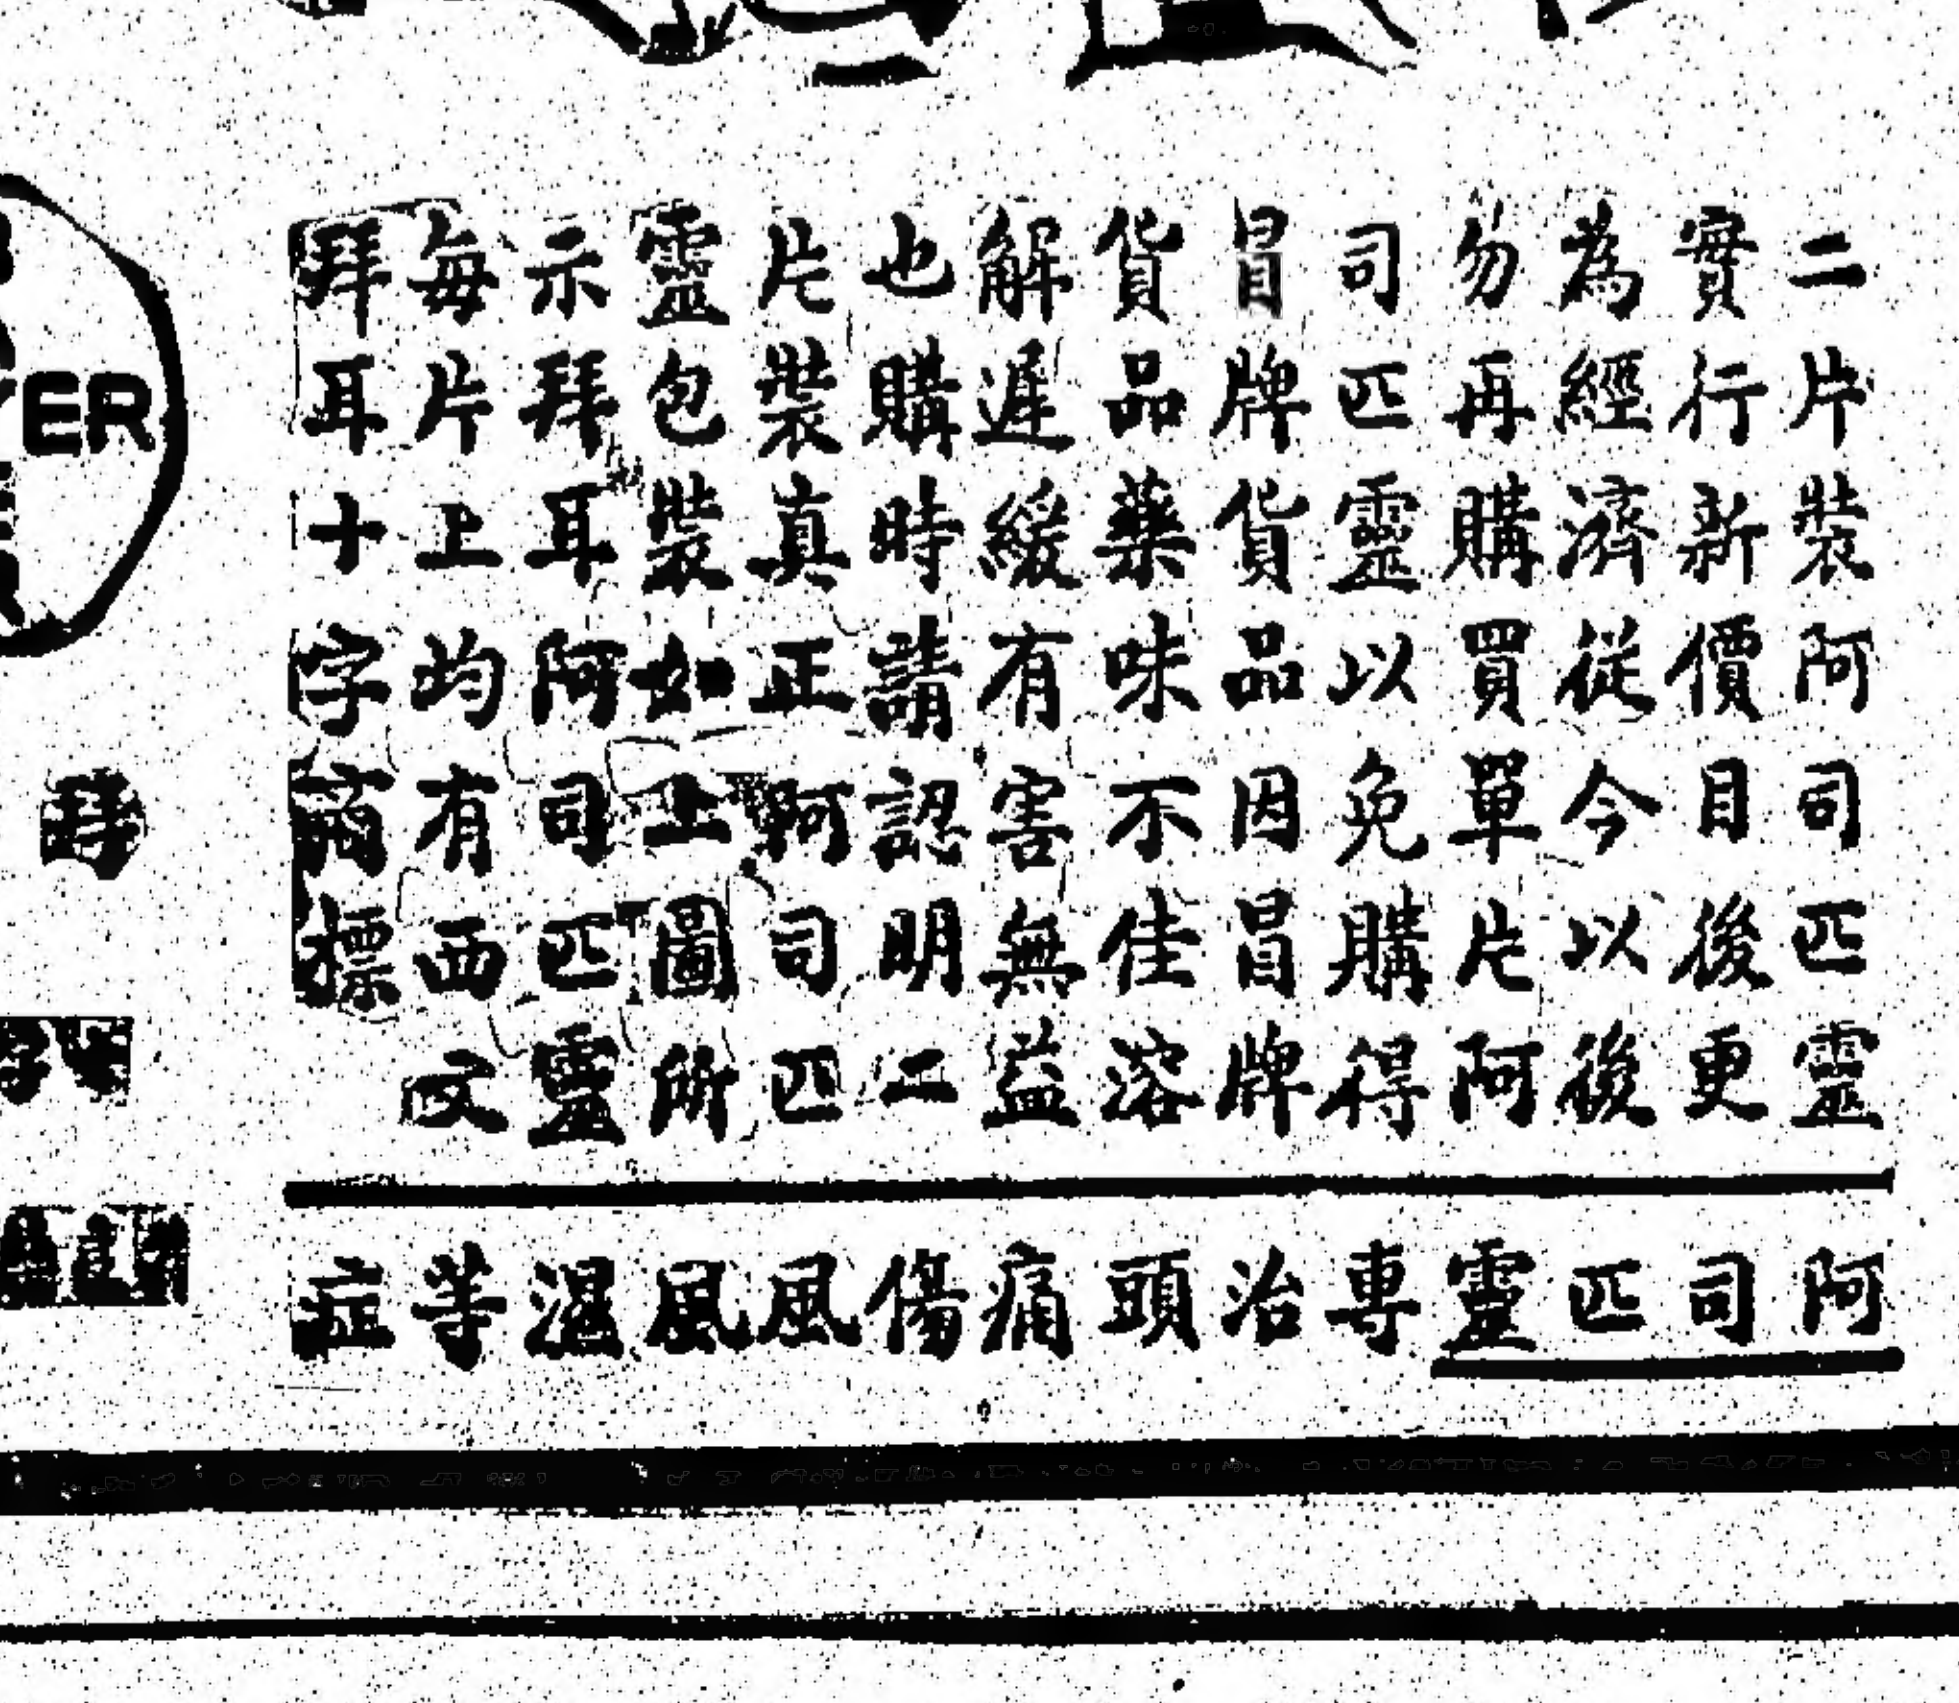 二片裝阿司匹靈
實行新價目後更
為經濟從今以後
勿再購買單片阿
司匹靈以免購得
冒牌貨品因冒牌
貨品藥味不佳溶
解遲緩有害無益
也購時請認明二
片裝真正阿司匹
靈包裝如上圖所
示拜耳阿司匹靈
每片上均有西文
拜耳十字商標
阿司匹靈專治頭痛傷風風濕等症
ER
拜